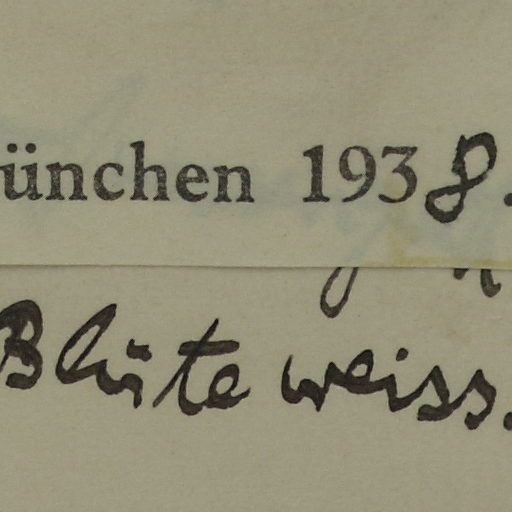 ünchen 1938.
Blüte weiss.